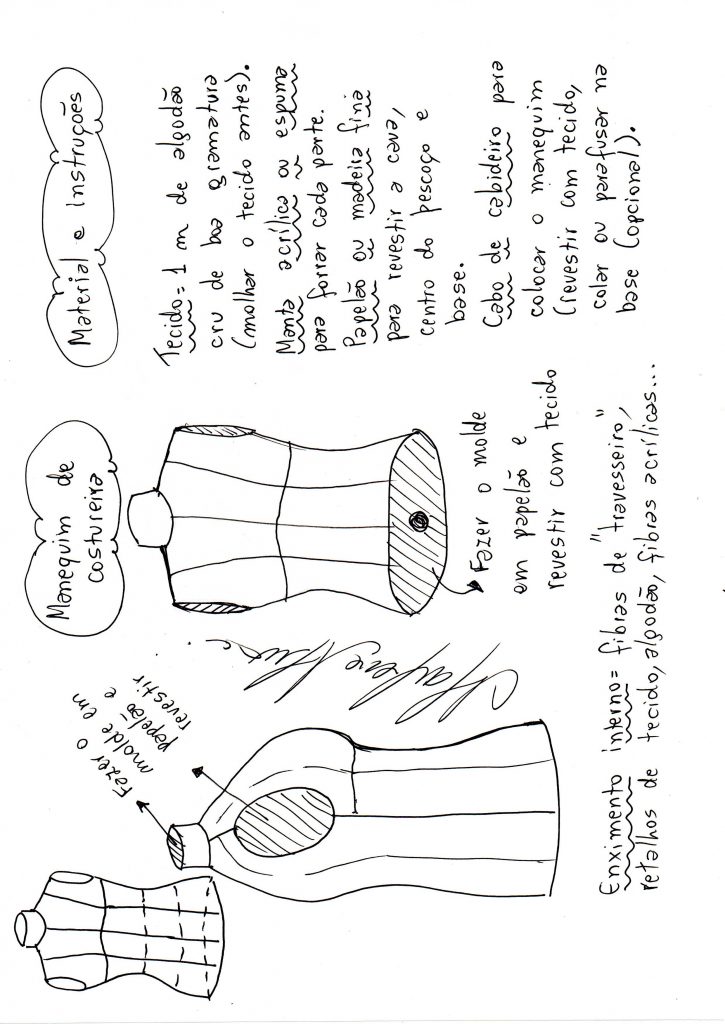 Manequim de
costureira
Material e instruções
Tecido = 1 m de algodão
cru de boa gramatura
(molhar o tecido antes).
Manta acrílica ou espuma
para forrar cada parte.
Papelão ou madeira fina
para revestir a cava,
centro do pescoço e
base.
Cabo de cabideiro para
colocar o manequim
(revestir com tecido,
colar ou parafusar na
base (opcional).
Fazer o
molde em
papelão e
revestir
Fazer o molde
em papelão e
revestir com tecido
Enximento interno = fibras de "travesseiro",
retalhos de tecido, algodão, fibras acrílicas...